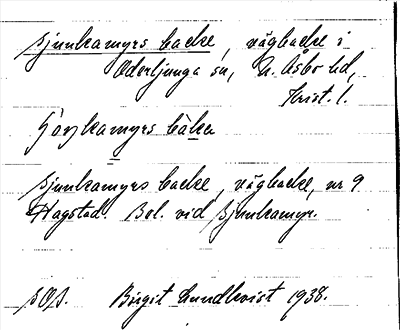 Sjunkamyrs backe, vägbacke i
Oderljunga sn, N. Åsbo hd,
Krist. l.
bàkɐ
Sjunkamyrs backe, vägbacke, nr 9
Hagstad. Bel. vid Sjunkamyr.
SOA. Birgit Lundkvist 1938.